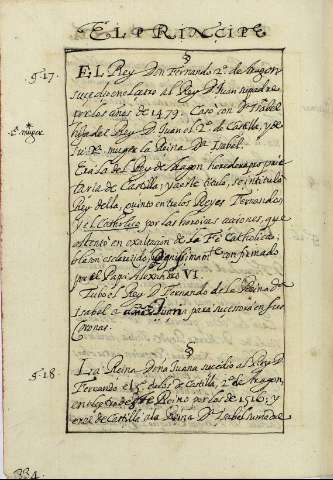 EL PRINCIPE
§
§. 17. EL Rey Don Fernando 2º. de Aragon
sucedio en el Reyno al Rey D. Juan su padre
por los años de 1479. Casò con Dª. Isabel
hija del Rey D. Juan el 2º. de Castilla, y de
su la Reina Dª. Isabel.
Era la del Rey de Aragon heredera propie
taria de Castilla; y a este titulo, se intitulò
Rey della, quinto en los Reyes Fernandos
y el Catholico por las heroicas acciones, que
ostentò en exaltacion de la Fè Catholica,
blason esclarecido, confirmado
por el Papa Alexandro VI
Tubo el Rey D. Fernando de la Reina Dª.
Isabel a Dª. Juana para sucesora en sus
Coronas.
§
§. 18. La Reina Doña Juana sucediò al Rey D.
Fernando el 5º. de los de Castilla, 2º. de Aragon,
en el Reino por los de 1516; y
en el de Castilla à la Reina Dª. Isabel su madre
334